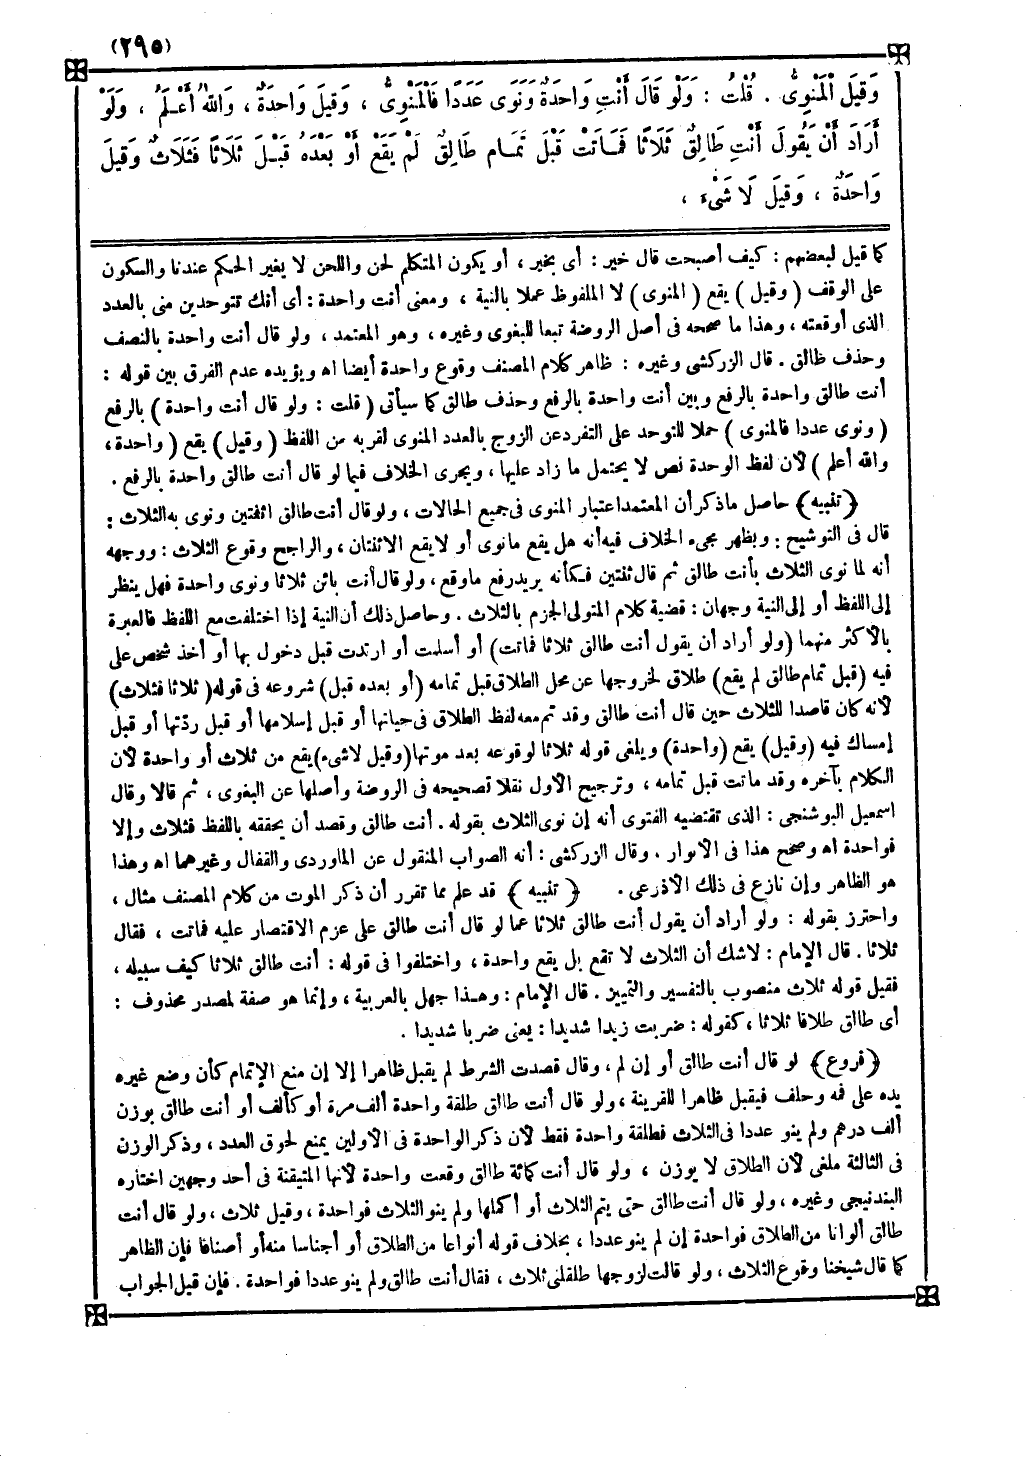 (٢٩٥)
وَقِيلَ الْمَنْوِىُّ . قُلْتُ : وَلَوْ قَالَ أَنْتِ وَاحِدَةٌ وَنَوَى عَدَدًا فَالْمَنْوِىُّ ، وَقِيلَ وَاحِدَةٌ ، وَاللهُ أَعْلَمُ ، وَلَوْ
أَرَادَ أَنْ يَقُولَ أَنْتِ طَالِقٌ ثَلَاثًا فَمَاتَتْ قَبْلَ تَمَامِ طَالِقٌ لَمْ يَقَعْ أَوْ بَعْدَهُ قَبْلَ ثَلَاثًا فَثَلَاثٌ وَقِيلَ
وَاحِدَةٌ ، وَقِيلَ لَا شَىْءَ ،
كما قيل لبعضهم : كيف أصبحت قال خير : أى بخير ، أو يكون المتكلم لحن واللحن لا يغير الحكم عندنا والسكون
على الوقف ( وقيل ) يقع ( المنوى ) لا الملفوظ عملا بالنية ، ومعنى أنت واحدة : أى أنك تتوحدين منى بالعدد
الذى أوقعته ، وهذا ما صححه فى أصل الروضة تبعا للبغوى وغيره ، وهو المعتمد ، ولو قال أنت واحدة بالنصف
وحذف طالق . قال الزركشى وغيره : ظاهر كلام المصنف وقوع واحدة أيضا اه ويؤيده عدم الفرق بين قوله :
أنت طالق واحدة بالرفع وبين أنت واحدة بالرفع وحذف طالق كما سيأتى ( قلت : ولو قال أنت واحدة ) بالرفع
( ونوى عددا فالمنوى ) حملا للتوحد على التفرد عن الزوج بالعدد المنوى لقربه من اللفظ ( وقيل ) يقع ( واحدة ،
والله أعلم ) لأن لفظ الوحدة نص لا يحتمل ما زاد عليها ، ويجرى الخلاف فيما لو قال أنت طالق واحدة بالرفع .
﴿ تنبيه ﴾ حاصل ماذكر أن المعتمد اعتبار المنوى فى جميع الحالات ، ولو قال أنت طالق اثنتين ونوى به الثلاث :
قال فى التوشيح : ويظهر مجىء الخلاف فيه أنه هل يقع مانوى أو لا يقع الا ثنتان ، والراجح وقوع الثلاث : ووجهه
أنه لما نوى الثلاث بأنت طالق ثم قال ثنتين فكأنه يريد رفع ماوقع ، ولو قال أنت بائن ثلاثا ونوى واحدة فهل ينظر
إلى اللفظ أو إلى النية وجهان : قضية كلام المتولى الجزم بالثلاث . وحاصل ذلك أن النية إذا اختلفت مع اللفظ فالعبرة
بالأكثر منهما (ولو أراد أن يقول أنت طالق ثلاثا فماتت) أو أسلمت أو ارتدت قبل دخول بها أو أخذ شخص على
فيه (قبل تمام طالق لم يقع) طلاق لخروجها عن محل الطلاق قبل تمامه (أو بعده قبل) شروعه فى قوله( ثلاثا فثلاث)
لأنه كان قاصدا للثلاث حين قال أنت طالق وقد تم معه لفظ الطلاق فى حياتها أو قبل إسلامها أو قبل ردّتها أو قبل
إمساك فيه (وقيل) يقع (واحدة) ويلغى قوله ثلاثا لوقوعه بعد موتها (وقيل لاشىء) يقع من ثلاث أو واحدة لأن
الكلام بآخره وقد ماتت قبل تمامه ، وترجيح الأول نقلا تصحيحه فى الروضة وأصلها عن البغوى ، ثم قالا وقال
اسمعيل البوشنجى : الذى تقتضيه الفتوى أنه إن نوى الثلاث بقوله . أنت طالق وقصد أن يحققه باللفظ فثلاث وإلا
فواحدة اه وصحح هذا فى الأنوار . وقال الزركشى : أنه الصواب المنقول عن الماوردى والقفال وغيرهما اه وهذا
هو الظاهر وإن نازع فى ذلك الأذرعى . ﴿ تنبيه ﴾ قد علم مما تقرر أن ذكر الموت من كلام المصنف مثال ،
واحترز بقوله : ولو أراد أن يقول أنت طالق ثلاثا عما لو قال أنت طالق على عزم الاقتصار عليه فماتت ، فقال
ثلاثا . قال الإمام : لاشك أن الثلاث لا تقع بل يقع واحدة ، واختلفوا فى قوله : أنت طالق ثلاثا كيف سبيله ،
فقيل قوله ثلاث منصوب بالتفسير والتمييز . قال الإمام : وهذا جهل بالعربية ، وإنما هو صفة لمصدر محذوف :
أى طالق طلاقا ثلاثا ، كقوله : ضربت زيدا شديدا : يعنى ضربا شديدا .
﴿ فروع ﴾ لو قال أنت طالق أو إن لم ، وقال قصدت الشرط لم يقبل ظاهرا إلا إن منع الإتمام كأن وضع غيره
يده على فمه وحلف فيقبل ظاهرا للقرينة ، ولو قال أنت طالق طلقة واحدة ألف مرة أو كألف أو أنت طالق بوزن
ألف درهم ولم ينو عددا فى الثلاث فطلقة واحدة فقط لأن ذكر الواحدة فى الأولين يمنع لحوق العدد ، وذكر الوزن
فى الثالثة ملغى لأن الطلاق لا يوزن ، ولو قال أنت كمائة طالق وقعت واحدة لأنها المتيقنة فى أحد وجهين اختاره
البندنيجى وغيره ، ولو قال أنت طالق حتى يتم الثلاث أو أكملها ولم ينو الثلاث فواحدة ، وقيل ثلاث ، ولو قال أنت
طالق ألوانا من الطلاق فواحدة إن لم ينو عددا ، بخلاف قوله أنواعا من الطلاق أو أجناسا منه أو أصنافا فإن الظاهر
كما قال شيخنا وقوع الثلاث ، ولو قالت لزوجها طلقنى ثلاث ، فقال أنت طالق ولم ينو عددا فواحدة . فإن قيل الجواب